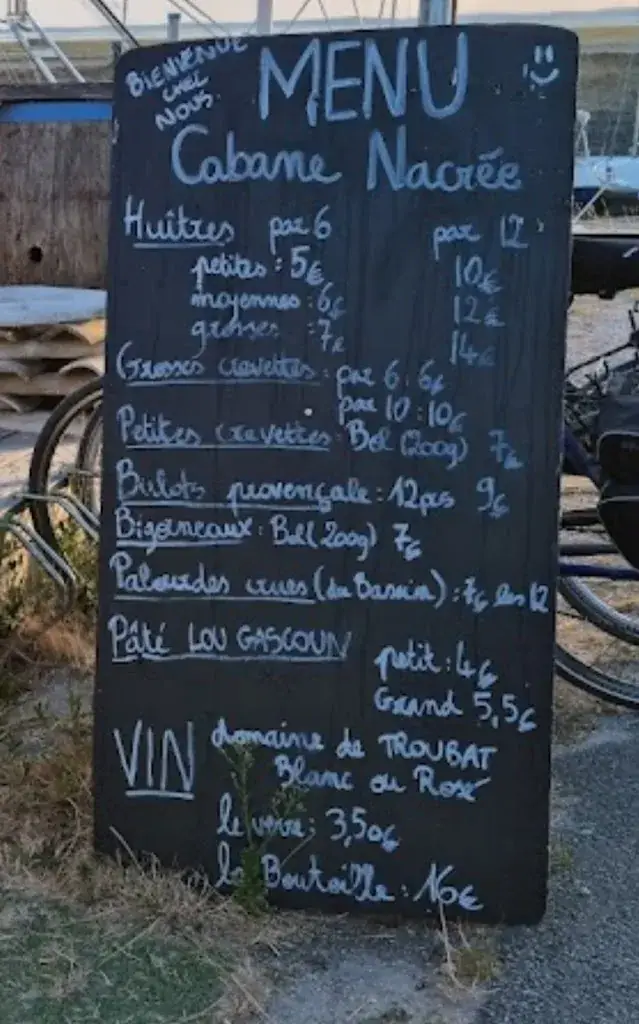 BIENVENUE
CHEZ
NOUS
MENU
Cabane Nacrée
Huîtres par 6 par 12
petites : 5€ 10€
moyennes : 6€ 12€
grosses : 7€ 14€
Grosses crevettes : par 6 : 6€
par 10 : 10€
Petites crevettes : Bol (200g) 7€
Bulots provençale : 12pcs 9€
Bigorneaux : Bol (200g) 7€
Palourdes crues (du Bassin) : 7€ les 12
Pâté LOU GASCOUN
petit : 4€
Grand 5,5€
VIN domaine de TROUBAT
Blanc ou Rosé
le verre : 3,50€
la Bouteille : 16€